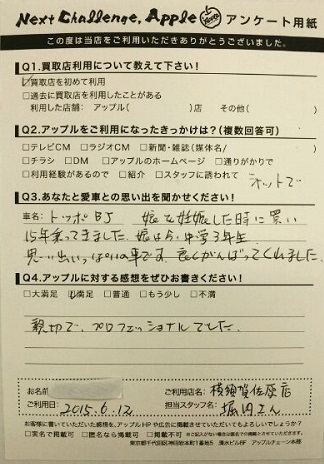 Next Challenge, Apple アンケート用紙
この度は当店をご利用いただきありがとうございました。
Q1.買取店利用について教えて下さい!
☑買取店を初めて利用
□過去に買取店を利用したことがある
利用した店舗: アップル( )店 その他( )
Q2.アップルをご利用になったきっかけは?(複数回答可)
□テレビCM □ラジオCM □新聞・雑誌(媒体名/ )
□チラシ □DM □アップルのホームページ □通りがかりで
□利用経験があるので □紹介 □スタッフに誘われて ネットで
Q3.あなたと愛車との思い出を聞かせください!
車名: トッポBJ 娘を妊娠した時に買い
15年乗ってきました。娘は今、中学3年生。
思い出いっぱいの車です。良くがんばってくれました。
Q4.アップルに対する感想をぜひお書きください!
□大満足 ☑満足 □普通 □もう少し □不満
親切で、プロフェッショナルでした。
お名前
ご利用店名: 横須賀佐原店
ご利用日: 2015.6.12 担当スタッフ名: 堀田さん
お客様に書いていただいた感想を、アップルHPや広告に掲載させていただいてもよろしいでしょうか?
□実名で掲載可 □匿名なら掲載可 □掲載不可
アップルチェーン本部